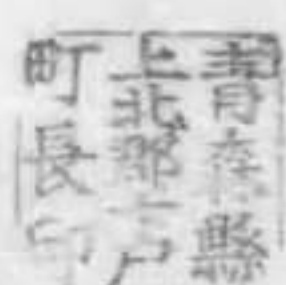 青森縣
上北郡七戸
町長印